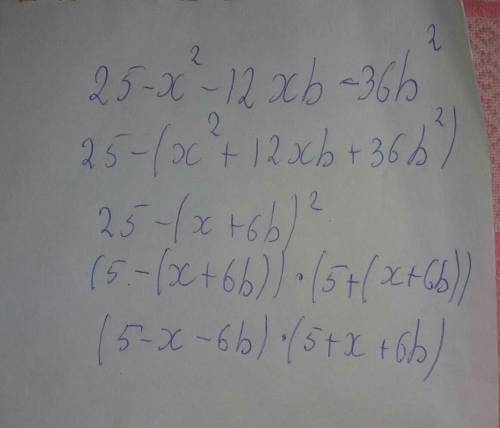 25-x²-12xb-36b²
25-(x²+12xb+36b²)
25-(x+6b)²
(5-(x+6b))·(5+(x+6b))
(5-x-6b)·(5+x+6b)